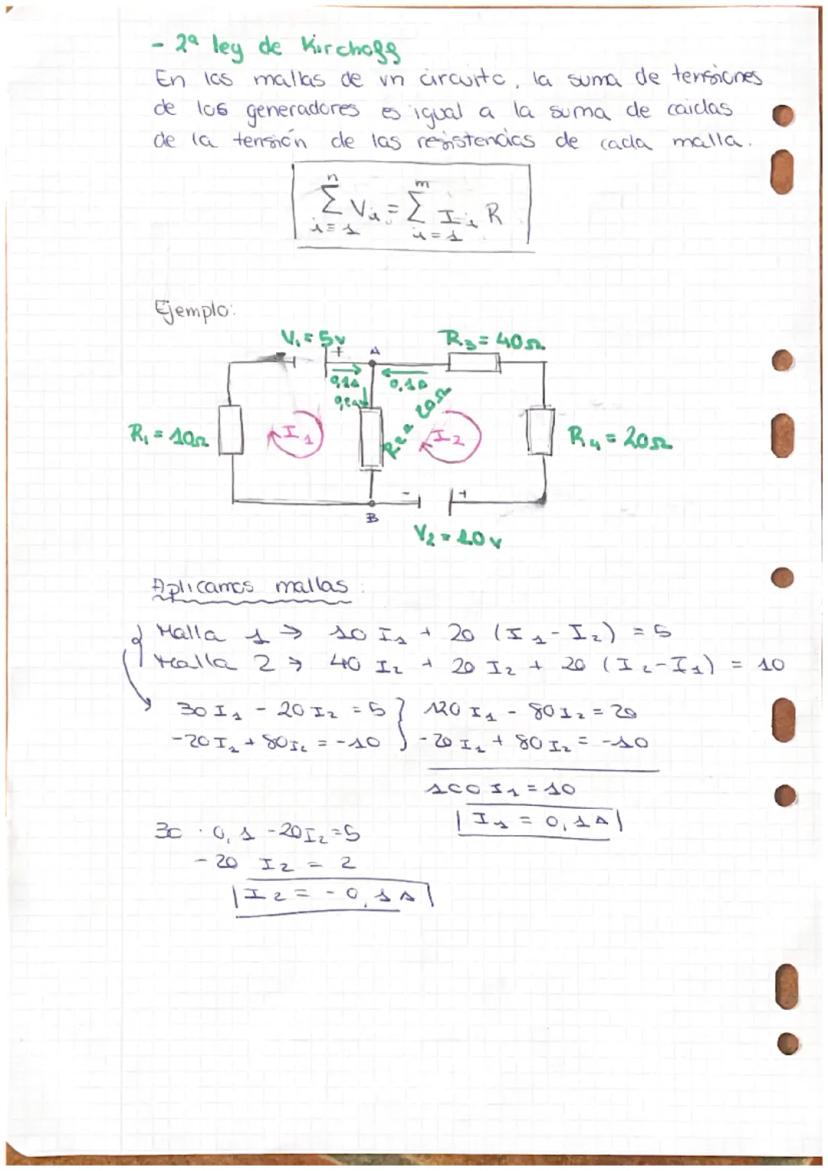 - 2ª ley de Kirchoff
En las mallas de un circuito, la suma de tensiones
de los generadores es igual a la suma de caidas
de la tensión de las resistencias de cada malla.
n m
Σ Vᵢ = Σ Iᵢ R
i = 1 i = 1
Ejemplo:
V₁ = 5v
R₃ = 40Ω
+ A
0,1A 0,1A
0,2A
R₂ = 20Ω
R₁ = 10Ω
I₁
I₂
R₄ = 20Ω
- +
B
V₂ = 10v
Aplicamos mallas:
Malla 1 → 10 I₁ + 20 (I₁ - I₂) = 5
Malla 2 → 40 I₂ + 20 I₂ + 20 (I₂ - I₁) = 10
30 I₁ - 20 I₂ = 5 } 120 I₁ - 80 I₂ = 20
-20 I₁ + 80 I₂ = -10 } -20 I₁ + 80 I₂ = -10
100 I₁ = 10
I₁ = 0,1A
30 · 0,1 - 20 I₂ = 5
- 20 I₂ = 2
I₂ = - 0,1A